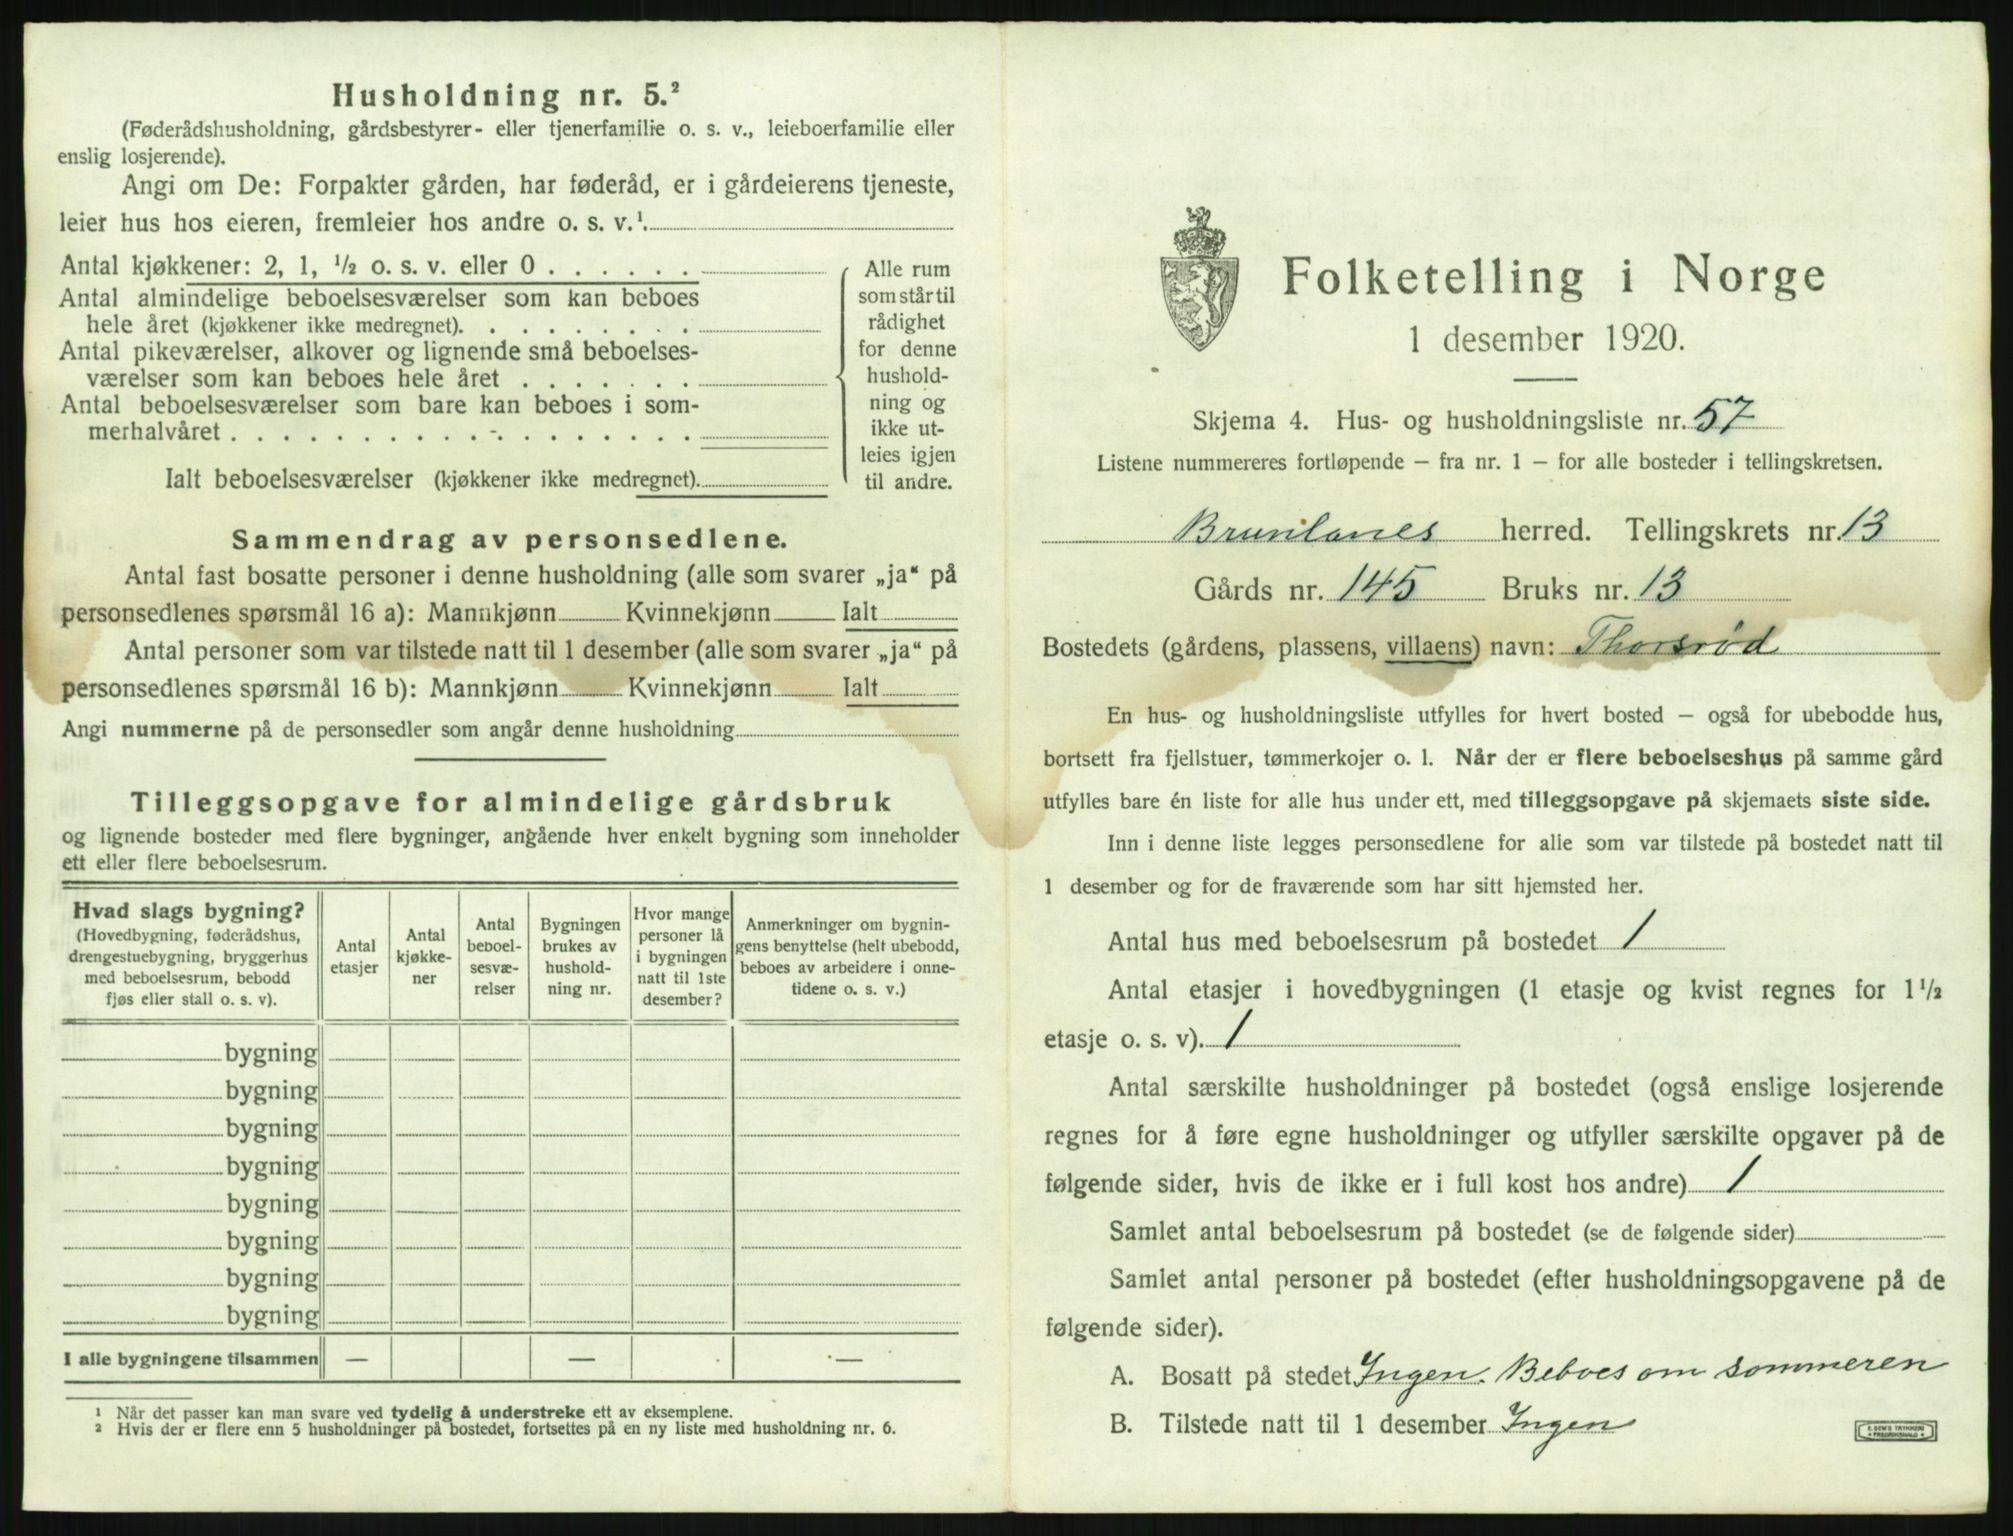 Husholdning nr. 5.²
(Føderådshusholdning, gårdsbestyrer- eller tjenerfamilie o. s. v., leieboerfamilie eller
enslig losjerende).
Angi om De: Forpakter gården, har føderåd, er i gårdeierens tjeneste,
leier hus hos eieren, fremleier hos andre o. s. v.¹.
Antal kjøkkener: 2, 1, ½ o. s. v. eller 0 . . . . . .
Antal almindelige beboelsesværelser som kan beboes
hele året (kjøkkener ikke medregnet). . . . . . . . . .
Antal pikeværelser, alkover og lignende små beboelses-
værelser som kan beboes hele året . . . . . . .
Antal beboelsesværelser som bare kan beboes i som-
merhalvåret . . . . . . . . . . . . . . . . . .
Ialt beboelsesværelser (kjøkkener ikke medregnet).
Alle rum
som står til
rådighet
for denne
hushold-
ning og
ikke ut-
leies igjen
til andre.
Sammendrag av personsedlene.
Antal fast bosatte personer i denne husholdning (alle som svarer „ja“ på
personsedlenes spørsmål 16 a): Mannkjønn Kvinnekjønn Ialt
Antal personer som var tilstede natt til 1 desember (alle som svarer „ja“ på
personsedlenes spørsmål 16 b): Mannkjønn Kvinnekjønn Ialt
Angi nummerne på de personsedler som angår denne husholdning
Tilleggsopgave for almindelige gårdsbruk
og lignende bosteder med flere bygninger, angående hver enkelt bygning som inneholder
ett eller flere beboelsesrum.
Hvad slags bygning?
(Hovedbygning, føderådshus,
drengestuebygning, bryggerhus
med beboelsesrum, bebodd
fjøs eller stall o. s. v).
Antal
etasjer
Antal
kjøkke-
ner
Antal
beboel-
sesvæ-
relser
Bygningen
brukes av
hushold-
ning nr.
Hvor mange
personer lå
i bygningen
natt til 1ste
desember?
Anmerkninger om bygnin-
gens benyttelse (helt ubebodd,
beboes av arbeidere i onne-
tidene o. s. v.)
bygning
bygning
bygning
bygning
bygning
bygning
bygning
bygning
I alle bygningene tilsammen — — —
¹ Når det passer kan man svare ved tydelig å understreke ett av eksemplene.
² Hvis der er flere enn 5 husholdninger på bostedet, fortsettes på en ny liste med husholdning nr. 6.
Folketelling i Norge
1 desember 1920.
Skjema 4. Hus- og husholdningsliste nr. 57
Listene nummereres fortløpende — fra nr. 1 — for alle bosteder i tellingskretsen.
Brunlanes herred. Tellingskrets nr. 13
Gårds nr. 145 Bruks nr. 13
Bostedets (gårdens, plassens, villaens) navn: Thorsrød
En hus- og husholdningsliste utfylles for hvert bosted — også for ubebodde hus,
bortsett fra fjellstuer, tømmerkojer o. l. Når der er flere beboelseshus på samme gård
utfylles bare én liste for alle hus under ett, med tilleggsopgave på skjemaets siste side.
Inn i denne liste legges personsedlene for alle som var tilstede på bostedet natt til
1 desember og for de fraværende som har sitt hjemsted her.
Antal hus med beboelsesrum på bostedet 1
Antal etasjer i hovedbygningen (1 etasje og kvist regnes for 1½
etasje o. s. v). 1
Antal særskilte husholdninger på bostedet (også enslige losjerende
regnes for å føre egne husholdninger og utfyller særskilte opgaver på de
følgende sider, hvis de ikke er i full kost hos andre) 1
Samlet antal beboelsesrum på bostedet (se de følgende sider)
Samlet antal personer på bostedet (efter husholdningsopgavene på de
følgende sider).
A. Bosatt på stedet Ingen. Beboes om sommeren
B. Tilstede natt til 1 desember Ingen
E. SEM'S TRYKKERI
FREDRIKSHALD